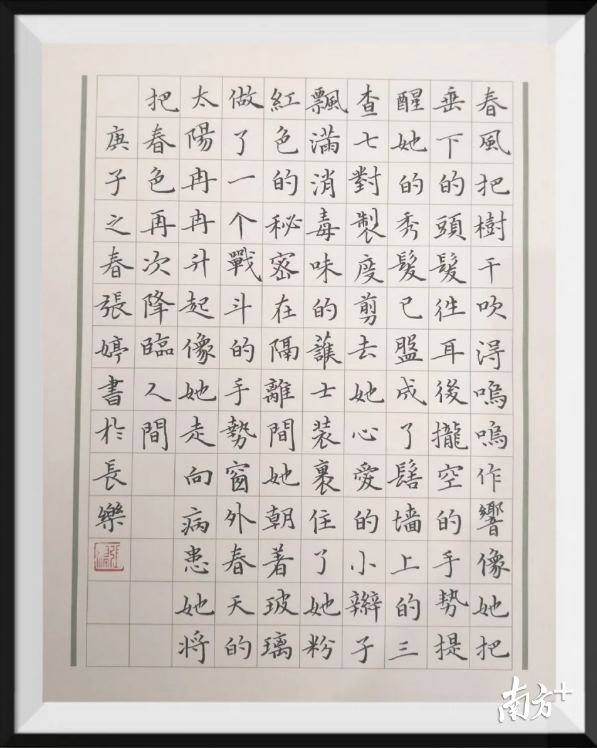 春風把樹干吹淂嗚嗚作響像她把
垂下的頭髮往耳後攏空的手勢提
醒她的秀髮已盤成了髻墻上的三
查七對製度剪去她心愛的小辮子
飄滿消毒味的護士裝裹住了她粉
紅色的秘密在隔離間她朝着玻璃
做了一個戰斗的手勢窗外春天的
太陽冉冉升起像她走向病患她將
把春色再次降臨人間
庚子之春張婷書於長樂
南方+